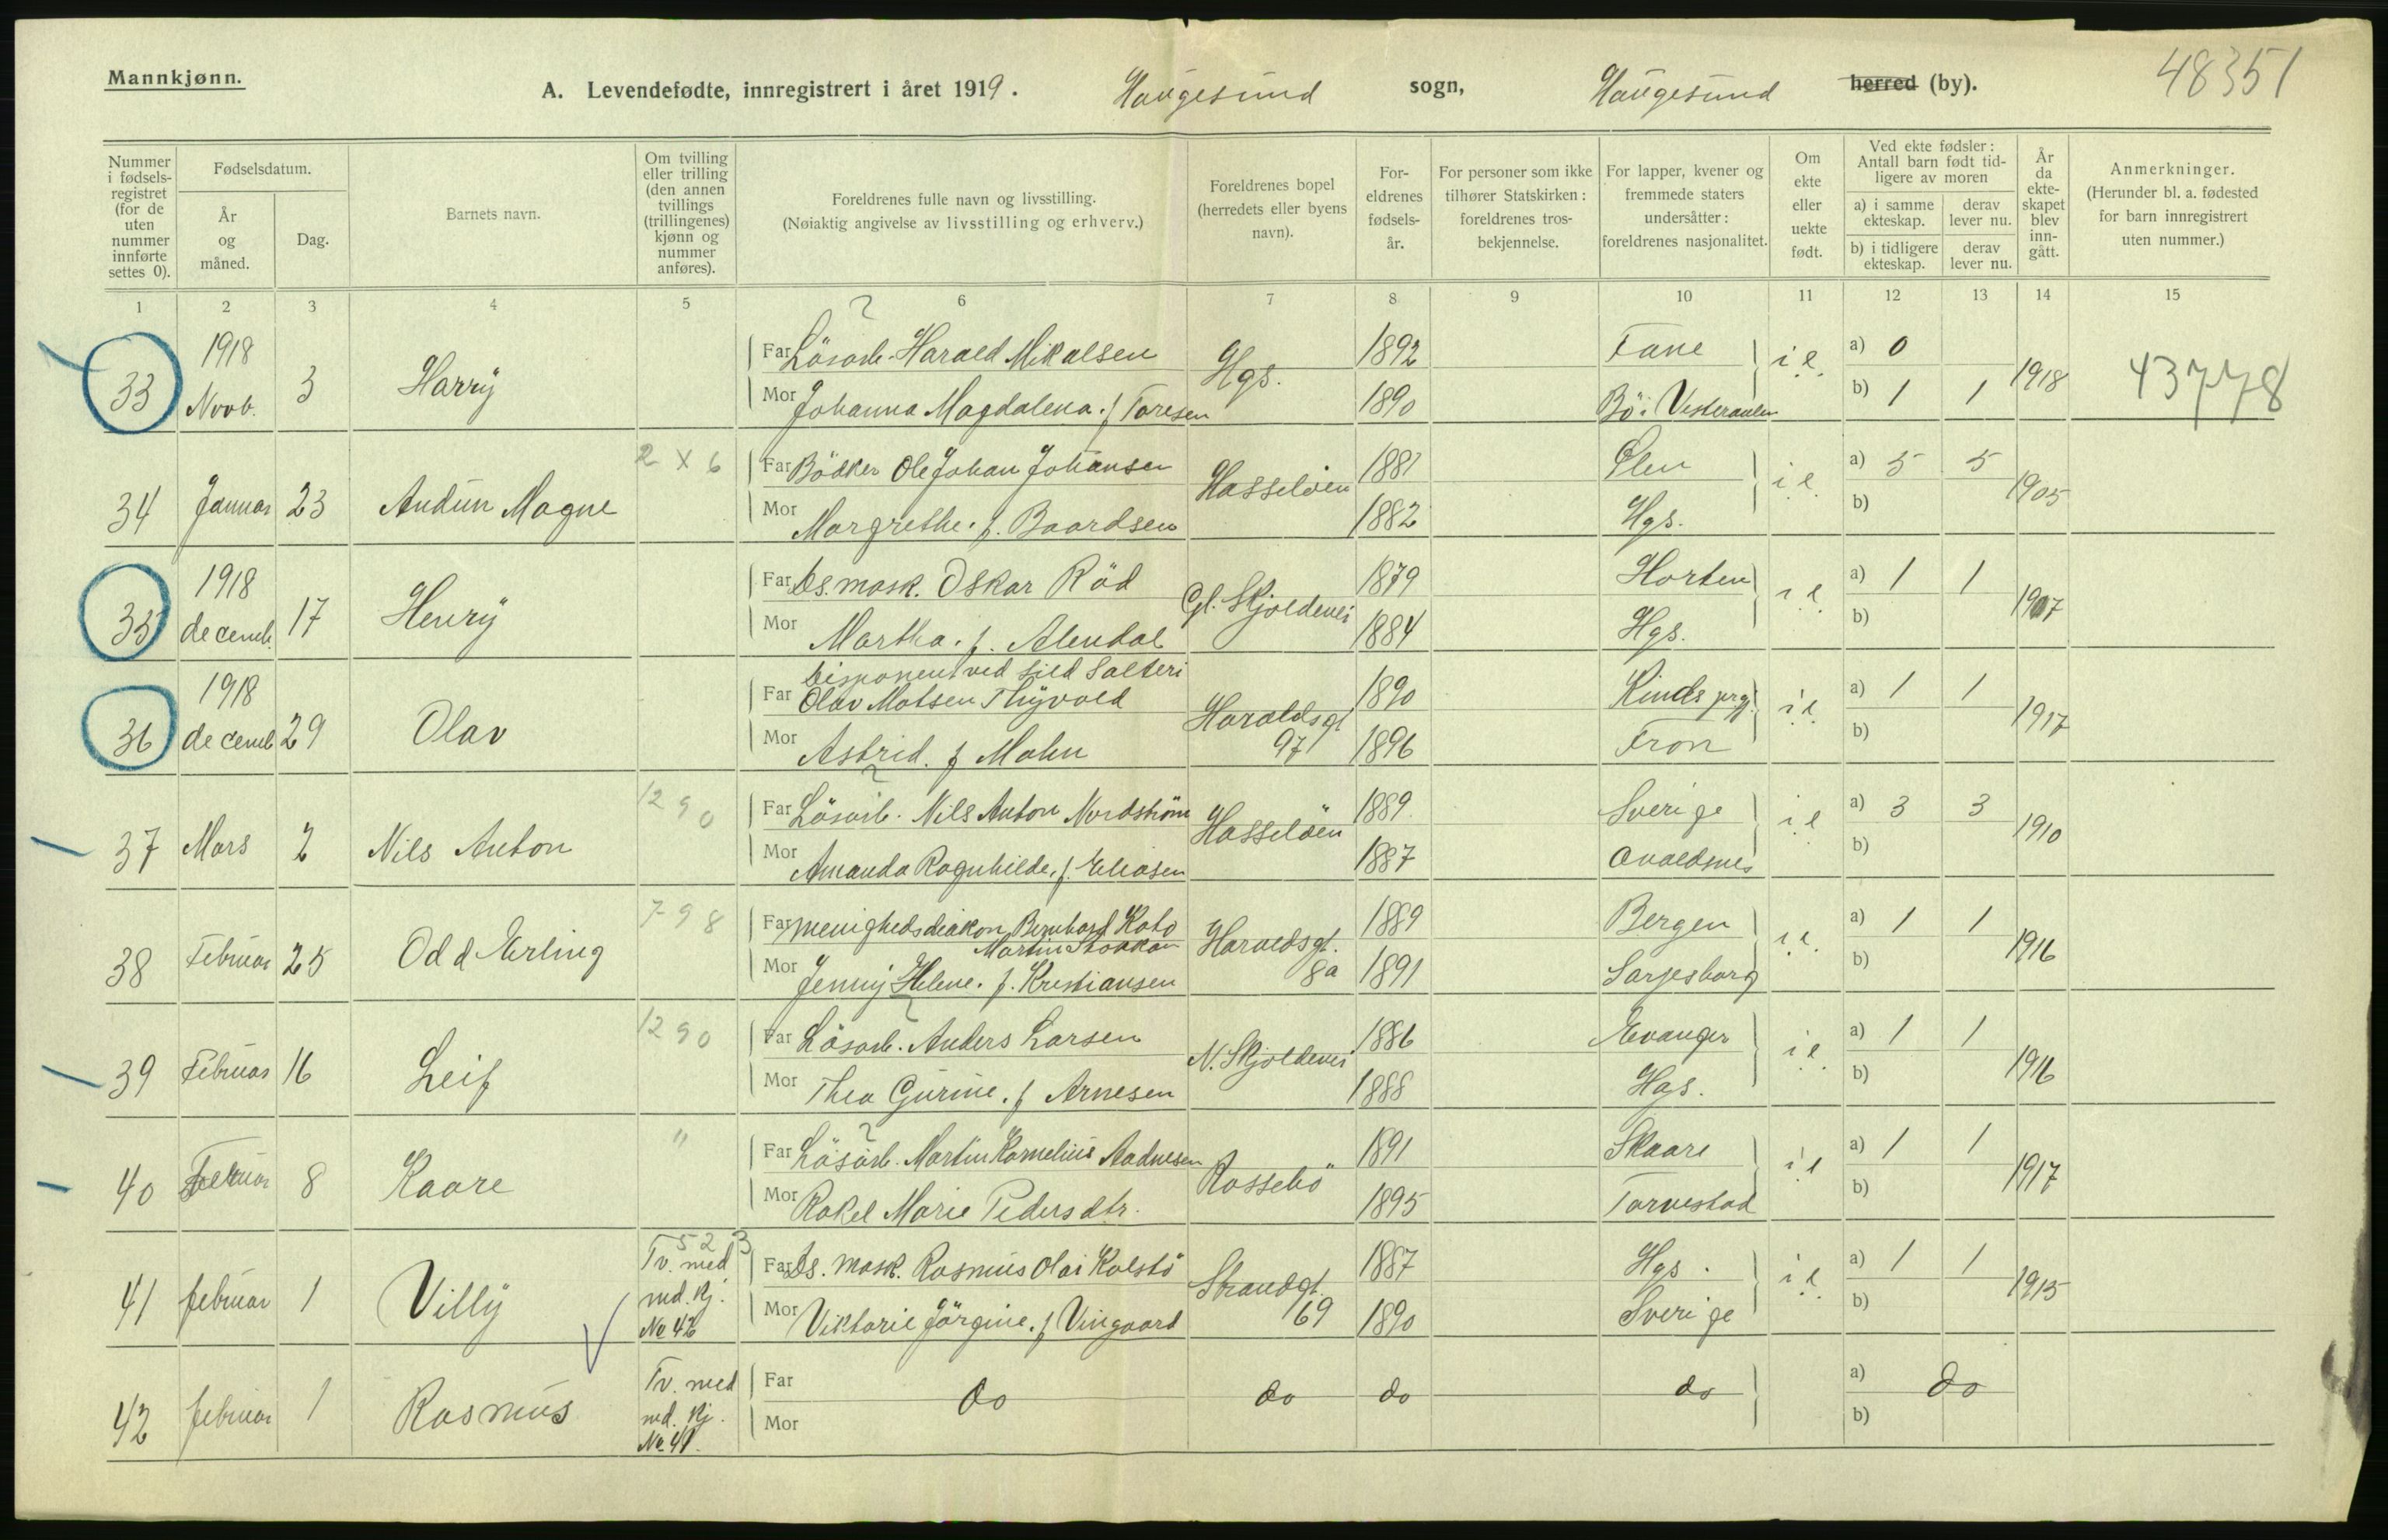 Mannkjønn.
A. Levendefødte, innregistrert i året 1919. Haugesund sogn, Haugesund herred (by).
48351
Nummer i fødsels-registret (for de uten nummer innførte settes 0).
Fødselsdatum.
År og måned.
Dag.
Barnets navn.
Om tvilling eller trilling (den annen tvillings (trillingenes) kjønn og nummer anføres).
Foreldrenes fulle navn og livsstilling.
(Nøiaktig angivelse av livsstilling og erhverv.)
Foreldrenes bopel (herredets eller byens navn).
For-eldrenes fødsels-år.
For personer som ikke tilhører Statskirken: foreldrenes tros-bekjennelse.
For lapper, kvener og fremmede staters undersåtter: foreldrenes nasjonalitet.
Om ekte eller uekte født.
Ved ekte fødsler: Antall barn født tid-ligere av moren
a) i samme ekteskap. derav lever nu.
b) i tidligere ekteskap. derav lever nu.
År da ekte-skapet blev inn-gått.
Anmerkninger.
(Herunder bl. a. fødested for barn innregistrert uten nummer.)
1 2 3 4 5 6 7 8 9 10 11 12 13 14 15
33 1918 Novb. 3 Harry
Far Lösarb. Harald Mikalsen Hgs. 1892 Fane i.e. a) 0 1918 43778
Mor Johanna Magdalena. f Toresen 1890 Bö i Vesteraalen b) 1 1
34 Januar 23 Audun Magne 2 X 6
Far Bödker Ole Johan Johansen Hasselöen 1881 Ølen i.e. a) 5 5 1905
Mor Margrethe. f. Baardsen 1882 Hgs. b)
35 1918 decemb. 17 Henry
Far Ds. mask. Oskar Röd Gl. Skjoldevei 1879 Horten i.e. a) 1 1 1907
Mor Martha. f. Alendal 1884 Hgs. b)
36 1918 decemb 29 Olav
Disponent ved Sild Salteri
Far Olav Matsen Thyvold Haraldsgt 97 1890 Kinds prgj. i.e. a) 1 1 1917
Mor Astrid. f Mohn 1896 Fron b)
37 Mars 2 Nils Anton 1290
Far Lösarb. Nils Anton Nordström Hasselöen 1889 Sverige i.e a) 3 3 1910
Mor Amanda Ragnhilde, f. Eliasen 1887 Avaldsnes b)
38 Februar 25 Odd Erling 798
Far Menighedsdiakon Bernhard Kato Martin Stokkan Haraldsgt. 8a 1889 Bergen i.e. a) 1 1 1916
Mor Jenny Helene. f. Kristiansen 1891 Sarpsborg b)
39 Februar 16 Leif 1290
Far Lösarb. Anders Larsen N. Skjoldevei 1886 Evanger i.e. a) 1 1 1916
Mor Thea Gurine. f Arnesen 1888 Hgs. b)
40 Februar 8 Kaare "
Far Lösarb. Martin Kornelius Aadnesen Rossebö 1891 Skaare i.e a) 1 1 1917
Mor Rakel Marie Pedersdtr. 1895 Torvestad b)
41 februar 1 Villy 523 Tv. med md. kj. No 42
Far Ds. mask. Rasmus Olai Kolstö Strandgt. 69 1887 Hgs. i.e. a) 1 1 1915
Mor Viktorie Jörgine. f Vingaard 1890 Sverige b)
42 februar 1 Rasmus Tv. med md. kj. No 41.
Far do do do do a) do
Mor b)